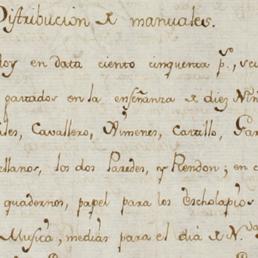 Distribución de manuales.
Hoy en data ciento cinquenta p.s, vei
gastados en la enseñanza de diez Niñ
ales, Cavallero, Ximenes, Castillo, Gar
ellanos, los dos Paredes, y Rendon; en c
quadernos, papel para los Escholapios
Musica, medias para el dia de N.